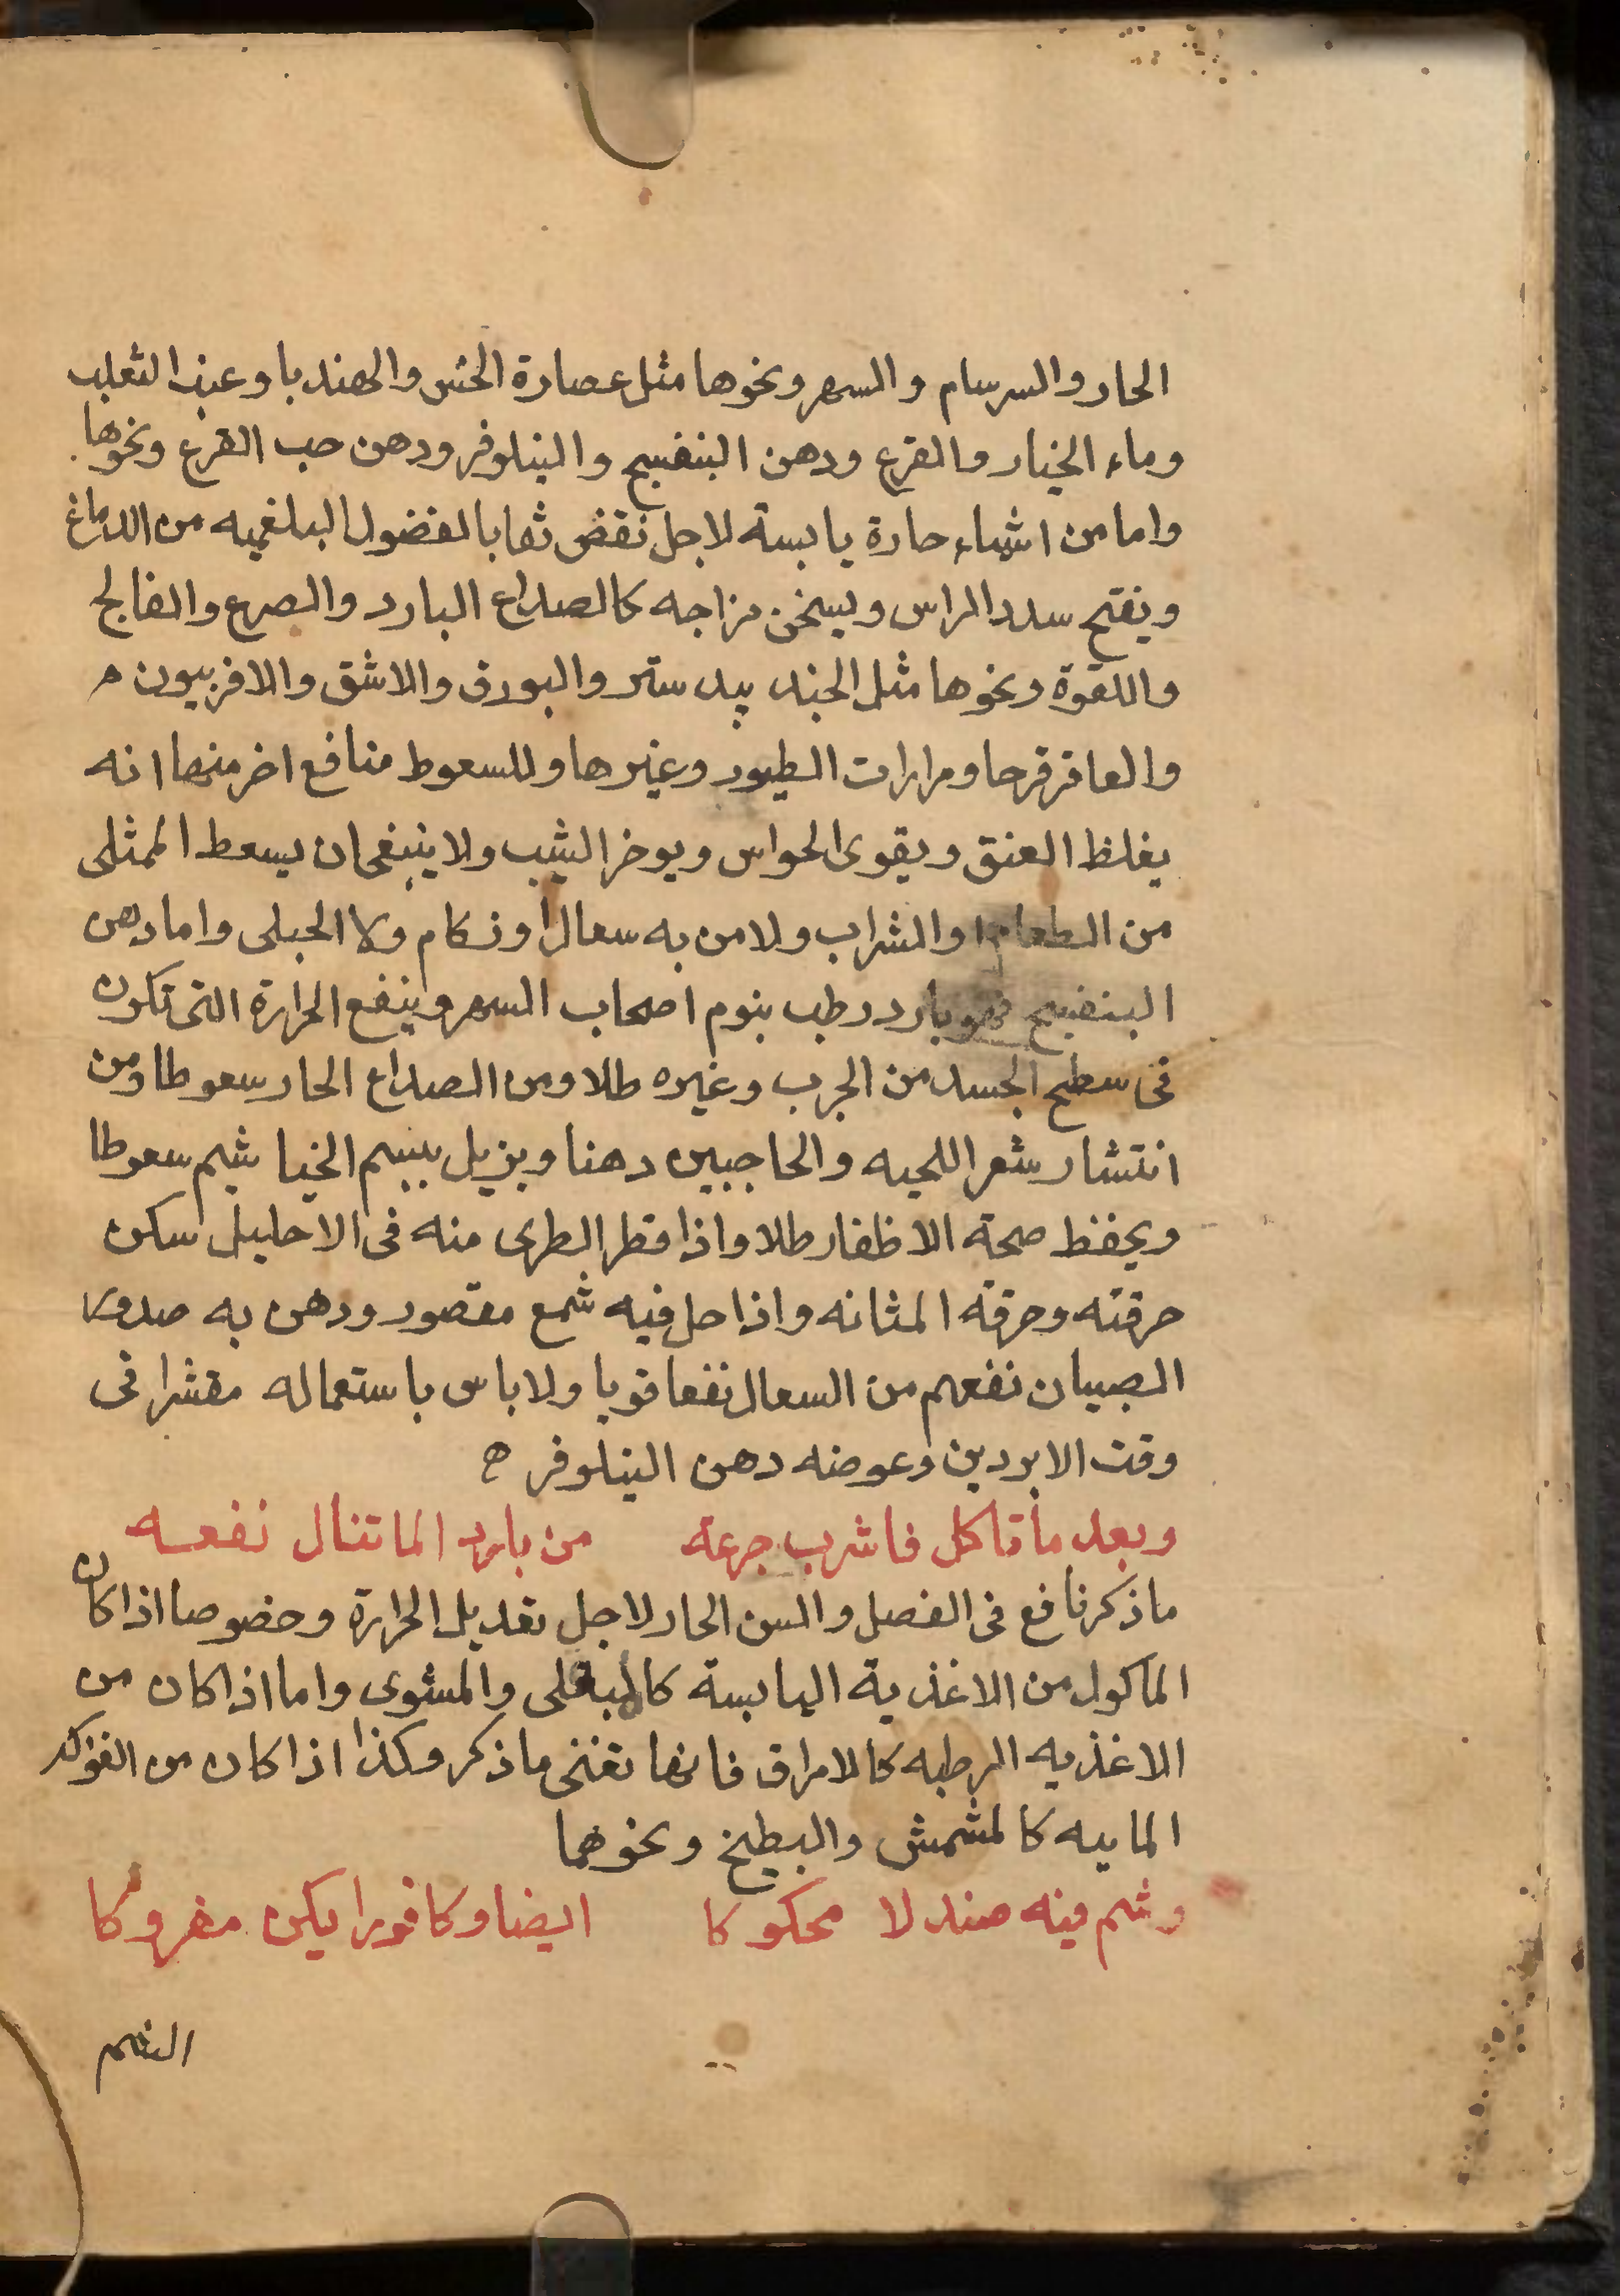 الحار والسرسام والسهر ونحوها مثل عصارة الخس والهندبا وعنب الثعلب
وماء الخيار والقرع ودهن البنفسج والنيلوفر ودهن حب القرع ونحوها.
واما من اشياء حارة يابسة لاجل نقض بالفضول البلغميه من الدماغ
ويفتح سدد الراس ويسخن مزاجه كالصداع البارد والصرع والفالج
واللقوة ونحوها مثل الجند بيد ستر والبورق والاشق والافربيون
والعاقر قرحا ومرارات الطيور وغيرها وللسعوط منافع اخر منها انه
يغلظ العنق ويقوى الحواس ويوخر الشيب ولا ينبغى ان يسعط الممتلى
من الطعام والشراب ولا من به سعال او زكام ولا الحبلى واما دهن
البنفسج فهو بارد رطب ينوم اصحاب السهر وينفع الحرارة التى تكون
فى سطح الجسد من الجرب وغيره طلا ومن الصداع الحار سعوطا ومن
انتشار شعر اللحيه والحاجبين دهنا ويزيل يبس الخياشيم سعوطا
ويحفظ صحة الاظفار طلا واذا قطر الطرى منه فى الاحليل سكن
حرقته وحرقة المثانه واذا حل فيه شمع مقصور ودهن به صدور
الصبيان نفعهم من السعال نفعا قويا ولا باس باستعماله مقشرا فى
وقت الابردين وعوضه دهن النيلوفر ه
وبعد ما تاكل فاشرب جرعة من بارد الما تنال نفعه
ما ذكر نافع فى الفصل والسن الحار لاجل تعديل الحرارة وخصوصا اذا كان
الماكول من الاغذية اليابسة كالمقلى والمشوى واما اذا كان من
الاغذيه الرطبه كالامراق فانها تغنى ما ذكر وكذا اذا كان من الفواكه
الماييه كالمشمش والبطيخ ونحوهما
وشم فيه صندلا محكوكا ايضا وكافورا يكن مفروكا
الشم